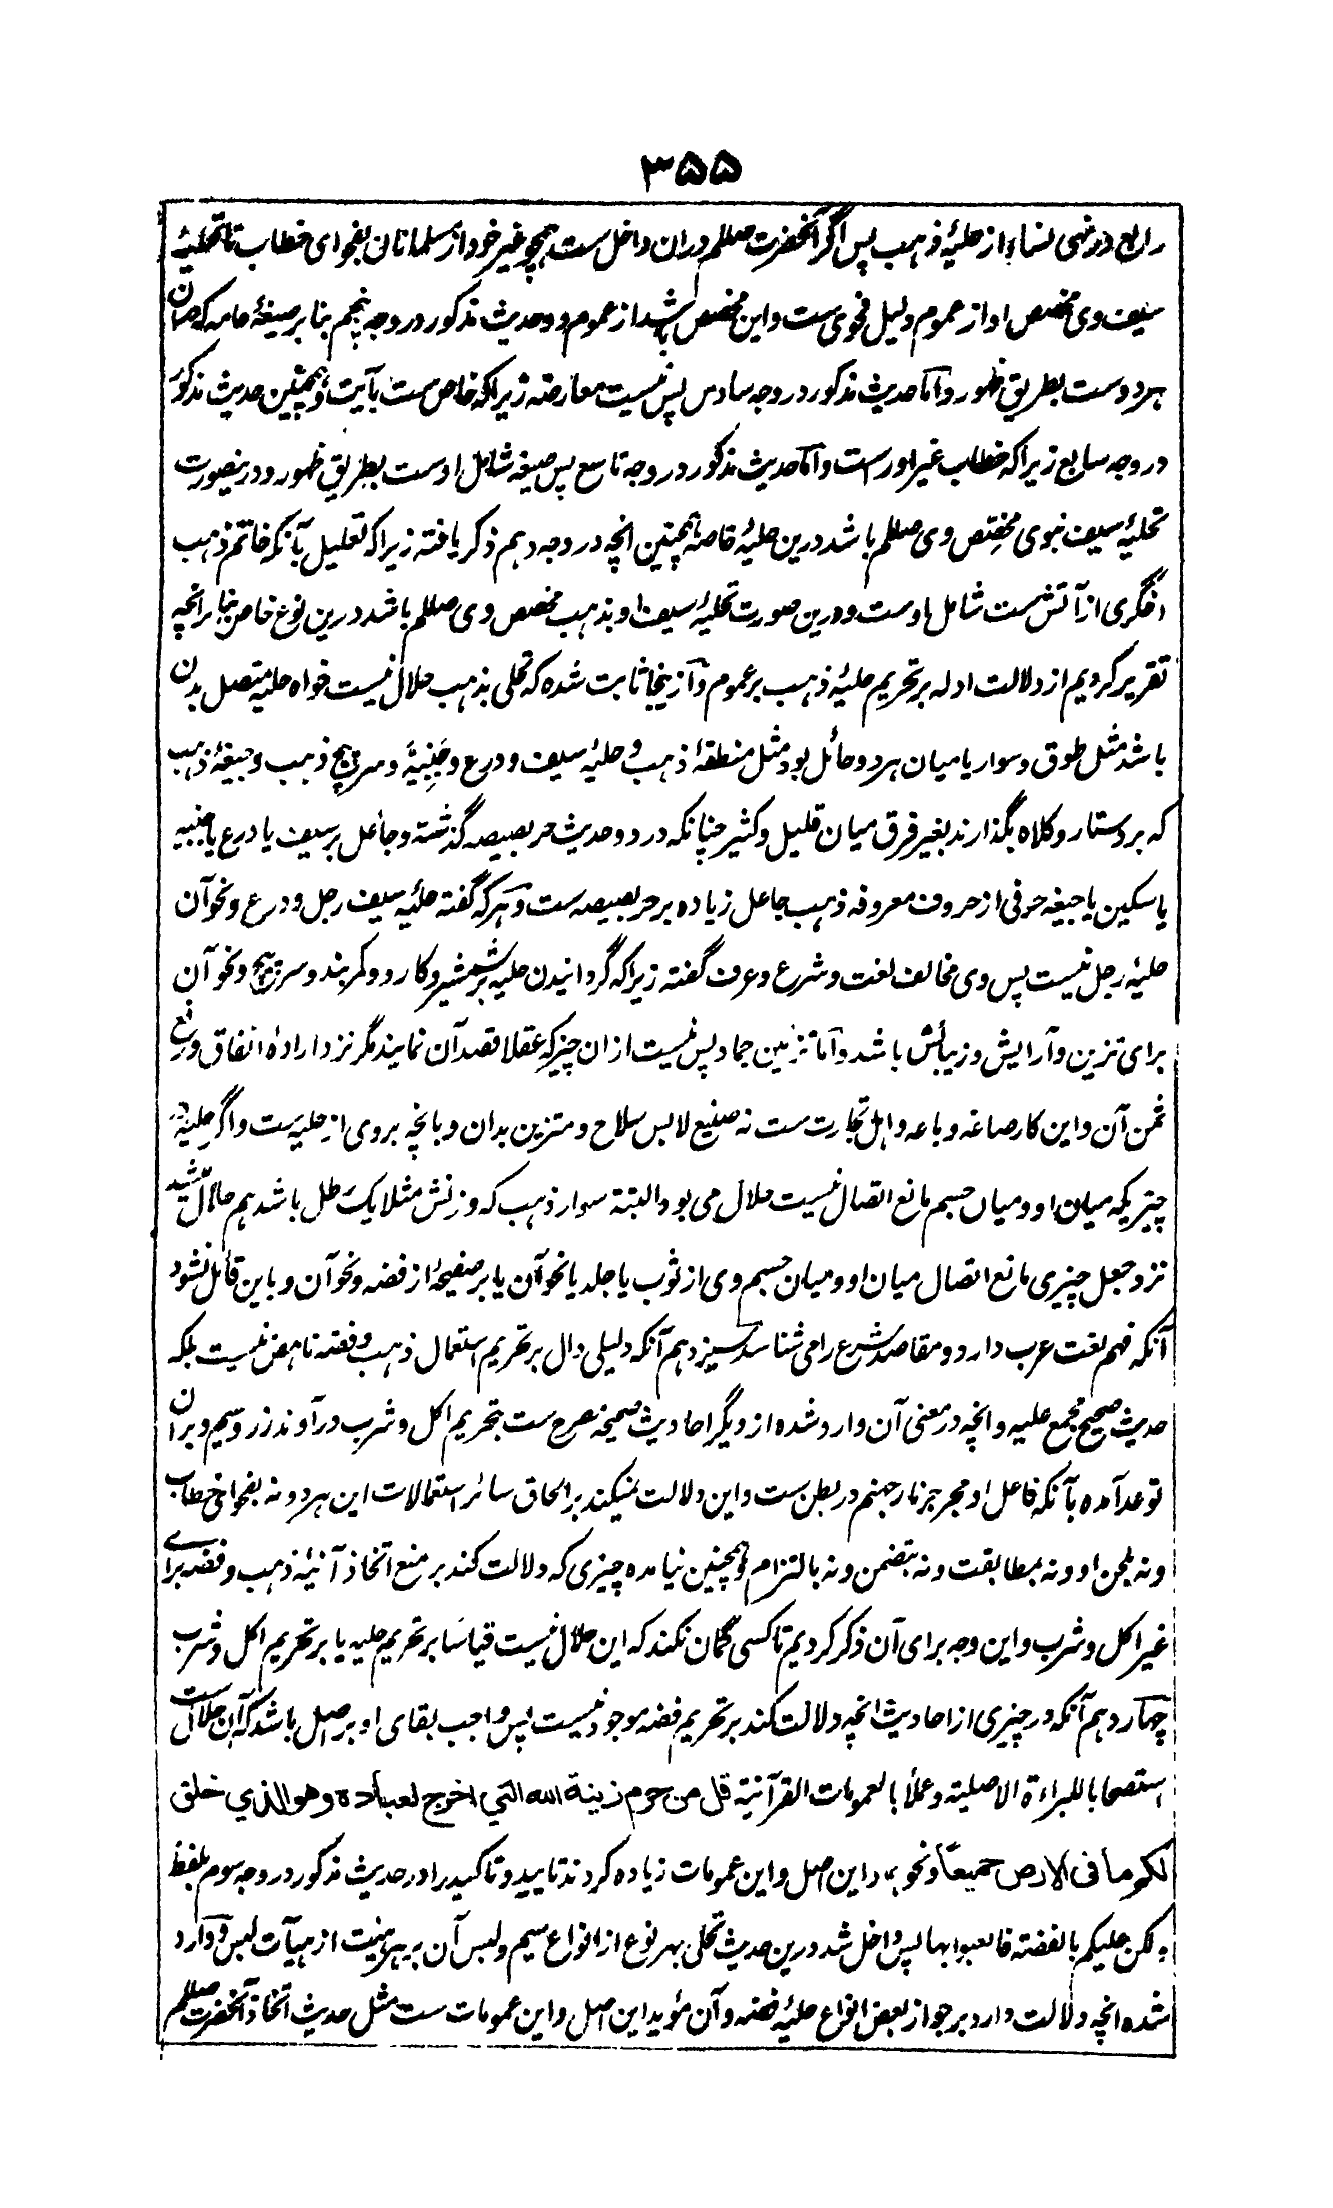 ۳۵۵
رابع در نهی نساء از حلیهٔ ذهب پس اگر آنحضرت صللم دران داخل ست همچو غیر خود از مسلمانان بفحوای خطاب تا تحلیهٔ
سیف وی مخصص او از عموم دلیل فحوی ست و این مخصص باشد از عموم دو حدیث مذکور در وجه پنجم بنا بر صیغهٔ عامه که صان
هر دو ست بطریق ظهور و اما حدیث مذکور در وجه سادس پس نیست معارضه زیراکه خاص ست بآیت و همچنین حدیث مذکور
در وجه سابع زیراکه خطاب غیر اورست و اما حدیث مذکور در وجه تاسع پس صیغه شامل اوست بطریق ظهور و درینصورت
تحلیهٔ سیف نبوی مختص وی صللم باشد درین حلیهٔ خاصه همچنین انچه در وجه دهم ذکر یافته زیراکه تعلیل بآنکه خاتم ذهب
اخگری از آتش ست شامل اوست و درین صورت تحلیهٔ سیف او بذهب مخصص وی صللم باشد درین نوع خاص بنا بر انچه
تقریر کردیم از دلالت ادله بر تحریم حلیهٔ ذهب بر عموم و از ینجا ثابت شده که تحلی بذهب حلال نیست خواه حلیه متصل بدن
باشد مثل طوق و سوار یا میان هر دو حائل بود مثل منطقهٔ ذهب و حلیهٔ سیف و درع و جَنبِیَّهٔ و سرپیچ ذهب و جیغهٔ ذهب
که بر دستار و کلاه بگذارند بغیر فرق میان قلیل و کثیر چنانکه در دو حدیث حر بصیصه گذشته و جاعل بر سیف یا درع یا جنبیه
یا سکین یا جیغه حرفی از حروف معروفه ذهب جاعل زیاده بر حر بصیصه ست و هرکه گفته حلیهٔ سیف رجل و درع و نحو آن
حلیهٔ رجل نیست پس وی مخالف لغت و شرع و عرف گفته زیراکه گردانیدن حلیه بر شمشیر و کارد و کمر بند و سرپیچ و نحو آن
برای تزین و آرایش و زیبائش باشد و اما تزیین جماد پس نیست ازان چیز که عقلا قصد آن نمایند مگر نزد ارادهٔ انفاق و رفع
ثمن آن و این کار صاغه و باعه و اهل تجارت ست نه صنیع لابس سلاح و متزین بدان و بانچه بروی از حلیه ست و اگر حلیهٔ در
چیزیکه میان او و میان جسم مانع اتصال نیست حلال می بود البتة سوار ذهب که وزنش مثلا یک رطل باشد هم حلال باشد
نزد جعل چیزی مانع اتصال میان او و میان جسم وی از ثوب یا جلد یا نحو آن یا بر صفیحهٔ از فضه و نحو آن و باین قائل نشود
آنکه فهم لغت عرب دارد و مقاصد شرع را می شناسد سیزدهم آنکه دلیلی دال بر تحریم استعمال ذهب و فضه ناهض نیست بلکه
حدیث صحیح مجمع علیه و انچه در معنی آن وارد شده از دیگر احادیث صحیحه مصرح ست بتحریم اکل و شرب در آوند زر و سیم و بران
توعد آمده بآنکه فاعل او مجرجر نار جهنم در بطن ست و این دلالت نمیکند بر الحاق سائر استعمالات این هر دو نه بفحوای خطاب
و نه بلحن او و نه بمطابقت و نه بتضمن و نه بالتزام و همچنین نیامده چیزی که دلالت کند بر منع اتخاذ آنیهٔ ذهب و فضه برای
غیر اکل و شرب و این وجه برای آن ذکر کردیم تا کسی گمان نکند که این حلال نیست قیاسًا بر تحریم حلیه یا بر تحریم اکل و شرب
چهاردهم آنکه در چیزی از احادیث انچه دلالت کند بر تحریم فضه موجود نیست پس واجب بقای او بر اصل باشد که آن حلال ست
استصحابا للبراءة الاصلیة و عملًا بالعمومات القرآنیة قل من حرم زینة الله التي اخرج لعباده و هو الذي خلق
لکم ما فی الارض جمیعًا و نحو بهاء این اصل و این عمومات زیاده کردند تایید و تاکید را در حدیث مذکور در وجه سوم بلفظ
و لکن علیکم بالفضة فالعبوا بها پس داخل شد درین حدیث تحلی بهر نوع از انواع سیم و لبس آن بر هر هیئت از هیآت لبس و وارد
شده انچه دلالت دارد بر جواز بعض انواع حلیهٔ فضه و آن مؤید این اصل و این عمومات ست مثل حدیث اتخاذ آنحضرت صللم